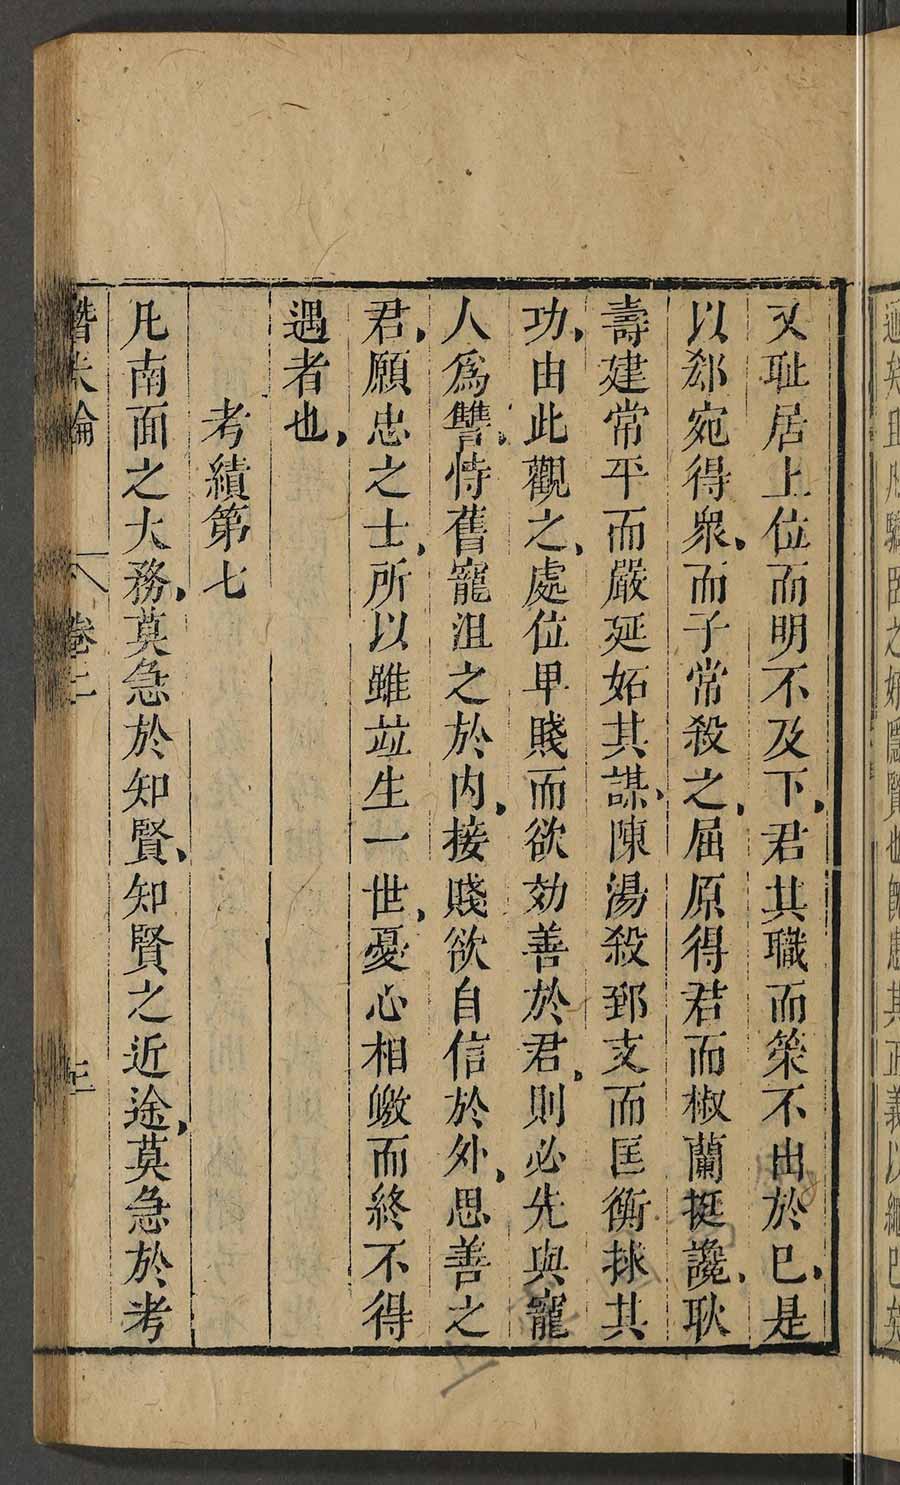 又耻居上位而明不及下,君其職而筞不出於巳,是
以郄宛得衆,而子常殺之,屈原得君而椒蘭挺讒,耿
壽建常平而嚴延妬其謀,陳湯殺郅支而匡衡捄其
功,由此觀之,處位卑賤而欲効善於君,則必先與寵
人爲讐,恃舊寵沮之於内,接賤欲自信於外,思善之
君,願忠之士,所以雖竝生一世,憂心相皦而終不得
遇者也,
考績第七
凡南面之大務,莫急於知賢,知賢之近途,莫急於考
潛夫論 卷二 三